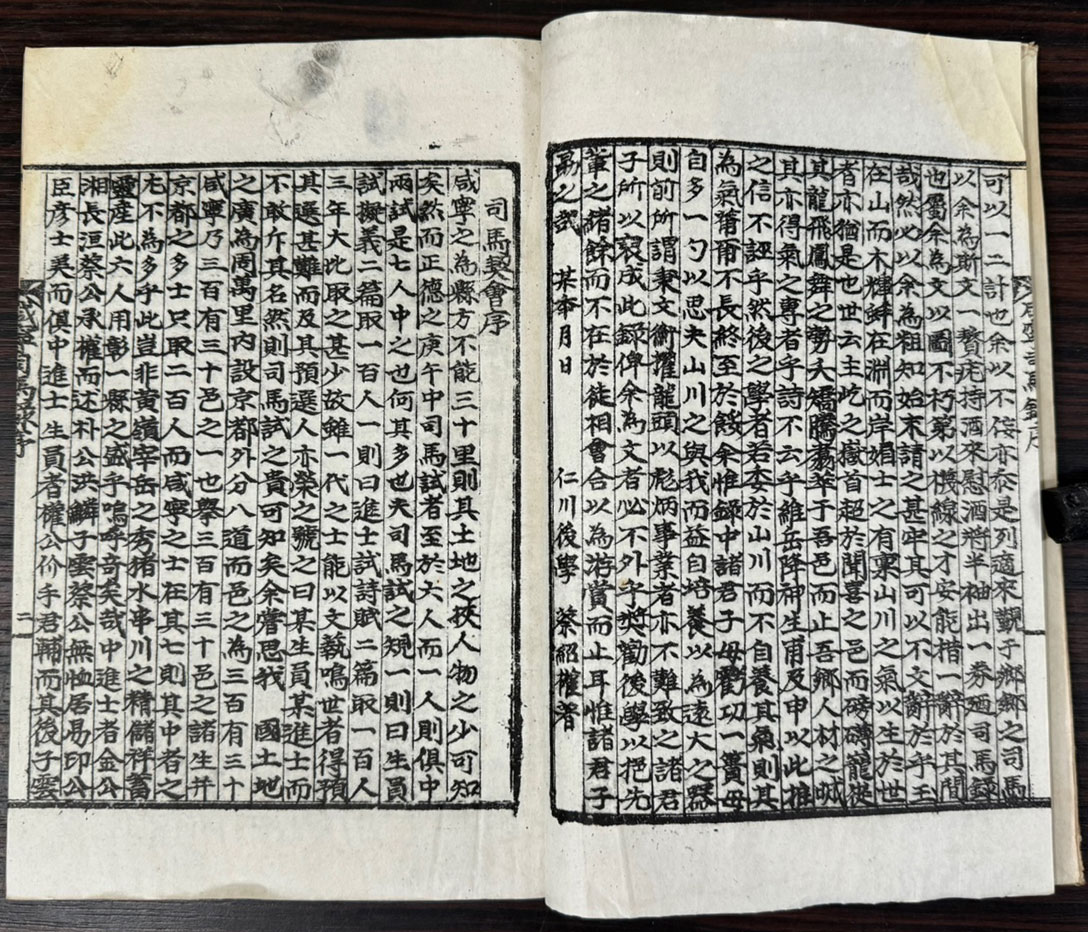 可以一二計也余以不佞亦忝是列適來覲于鄉鄉之司馬
以余為斯文一贅疣持酒來慰酒將半袖出一券廼司馬錄
也屬余為文以圖不朽第以襪線之才安能楷一辭於其間
哉然必以余為粗知始末請之甚牢其可以不文辭於乎玉
在山而木輝蚌在淵而岸媚士之有稟山川之氣以生於世
者亦猶是也世云主屹之嶽首超於聞喜之邑而磅礴龍從
其龍飛鳳舞之勢夭矯騰蕩萃于吾邑而止吾鄉人材之盛
其亦得氣之專者乎詩不云乎維岳降神生甫及申以此推
之信不誣乎然後之學者若委於山川而不自養其氣則其
為氣薾薾不長終至於餒余惟錄中諸君子毋虧功一簣毋
自多一勺以思夫山川之與我而益自培養以為遠大之器
則前所謂秉文衡擢龍頭以彪炳事業者亦不難致之諸君
子所以裒成此錄俾余為文者必不外乎獎勸後學以挹先
輩之緒餘而不在於徒相會合以為游賞而止耳惟諸君子
勗之哉 某年月日 仁川後學 蔡紹權著
司馬契會序
咸寧之為縣方不能三十里則其土地之狹人物之少可知
矣然而正德之庚午中司馬試者至於六人而一人則俱中
兩試是七人中之也何其多也夫司馬試之規一則曰生員
試擬義二篇取一百人一則曰進士試詩賦二篇取一百人
三年大比取之甚少故雖一代之士能以文藝鳴世者得預
其選甚難而及其預選人亦榮之號之曰某生員某進士而
不敢斥其名然則司馬試之貴可知矣余嘗思我 國土地
之廣為周萬里內設京都外分八道而邑之為三百有三十
咸寧乃三百有三十邑之一也擧三百有三十邑之諸生幷
京都之多士只取二百人而咸寧之士在其七則其中者之
尤不為多乎此豈非黃嶺宰岳之秀猪水串川之精儲祥蓄
靈產此六人用彰一縣之盛乎嗚呼奇矣哉中進士者金公
湘長洹蔡公承權而述朴公洪鱗子雲蔡公無恤居易印公
臣彦士美而俱中進士生員者權公价手君輔而其後子雲
咸寧司馬錄序
二